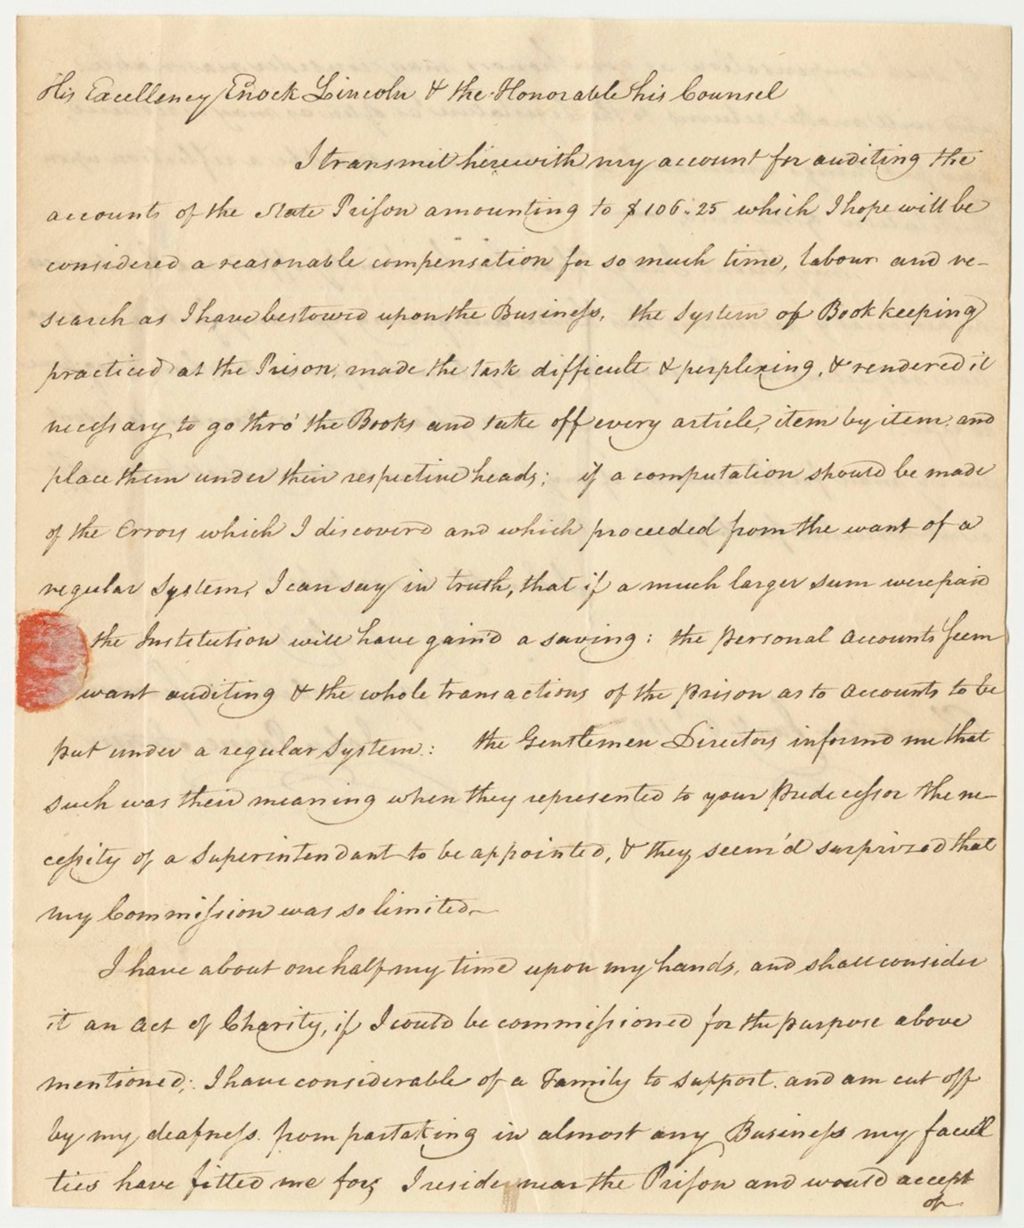 His Excellency Enock Lincoln & the Honorable his Counsel
I transmit herewith my account for auditing the
accounts of the State Prison amounting to $106.25 which I hope will be
considered a reasonable compensation for so much time, labour and re-
search as I have bestowed upon the Business, the System of Book keeping
practiced at the Prison, made the task difficult & perplexing, & rendered it
necessary to go thro' the Books and take off every article, item by item, and
place them under their respective heads; if a computation should be made
of the Errors which I discoverd and which proceeded from the want of a
regular System, I can say in truth, that if a much larger sum were paid
the Institution will have gain'd a saving: the personal accounts seem
want auditing & the whole transactions of the prison as to accounts to be
put under a regular System: the Gentlemen Directors informd me that
such was their meaning when they represented to your Predecessor the ne-
cessity of a Superintendant to be appointed, & they seem'd surprized that
my Commission was so limited
I have about one half my time upon my hands, and shall consider
it an act of Charity, if I could be commissioned for the purpose above
mentioned; I have considerable of a Family to support and am cut off
by my deafness from partaking in almost any Business my facul
ties have fitted me for, I reside near the Prison and would accept
of